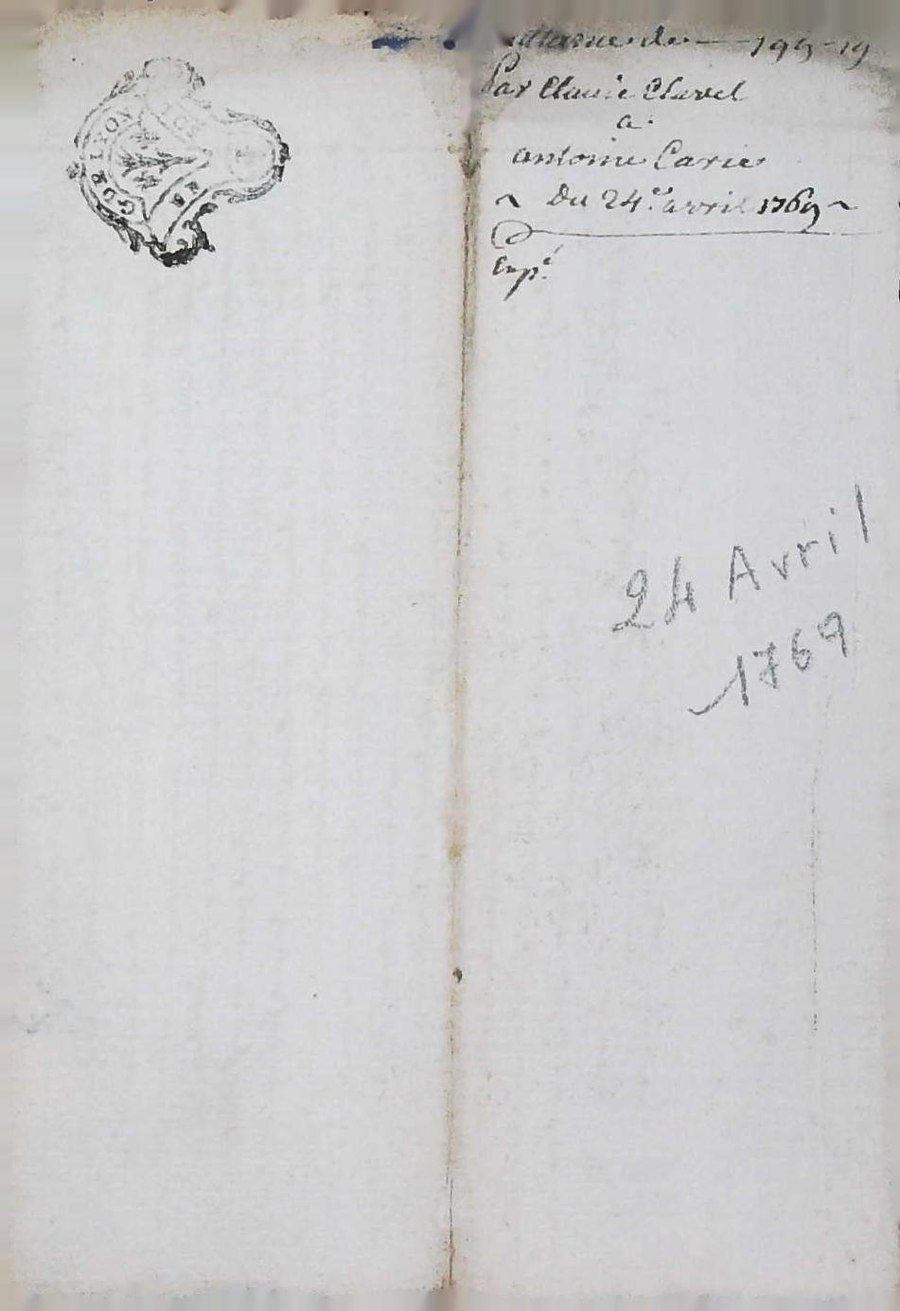 G DE LYON
SOLS
199-19
Par Claude Clavel
a
antoine Carie
Du 24e avril 1769
Exp.é
24 Avril
1769